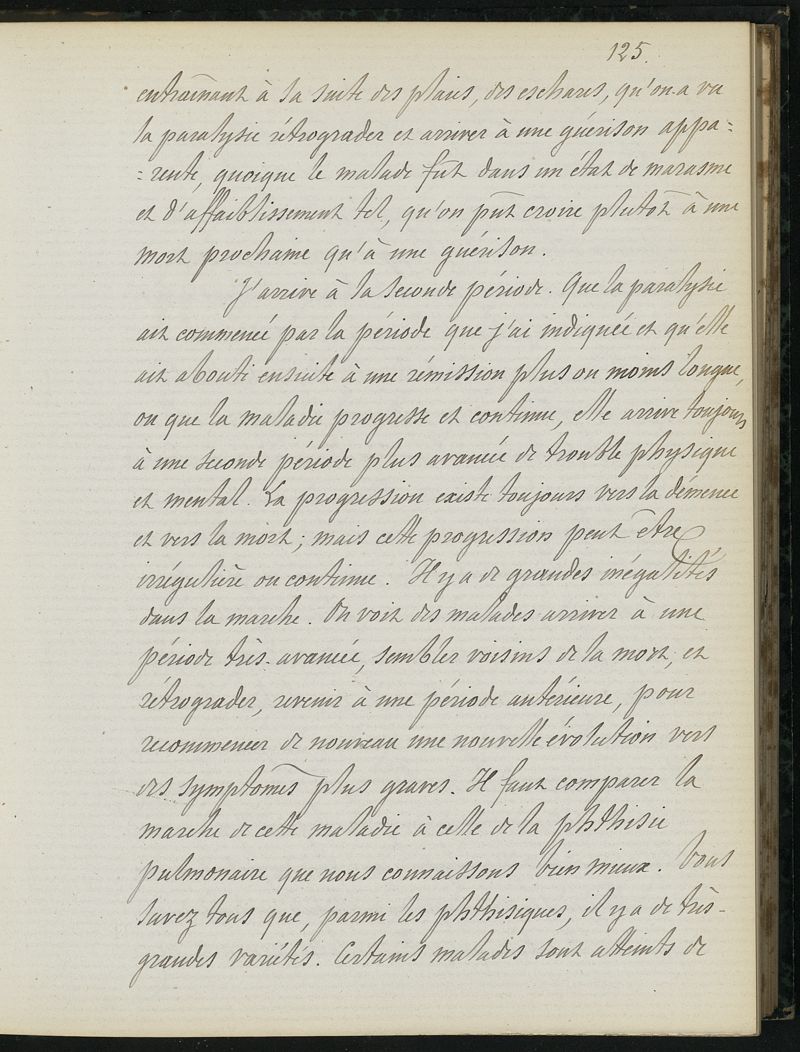 125.
entraînant à sa suite des plaies, des eschares, qu'on a vu
la paralysie rétrograder et arriver à une guérison appa=
=rente, quoique le malade fût dans un état de marasme
et d'affaiblissement tel, qu'on pût croire plutôt à une
mort prochaine qu'à une guérison.
J'arrive à la seconde période. Que la paralysie
ait commencé par la période que j'ai indiquée et qu'elle
ait abouti ensuite à une rémission plus ou moins longue,
ou que la maladie progresse et continue, elle arrive toujours
à une seconde période plus avancée de trouble physique
et mental. La progression existe toujours vers la démence
et vers la mort; mais cette progression peut être
irrégulière ou continue. Il y a de grandes inégalités
dans la marche. On voit des malades arriver à une
période très-avancée, sembler voisins de la mort, et
rétrograder, revenir à une période antérieure, pour
recommencer de nouveau une nouvelle évolution vers
des symptômes plus graves. Il faut comparer la
marche de cette maladie à celle de la phthisie
pulmonaire que nous connaissons bien mieux. Vous
savez tous que, parmi les phthisiques, il y a de très-
grandes variétés. Certains malades sont atteints de